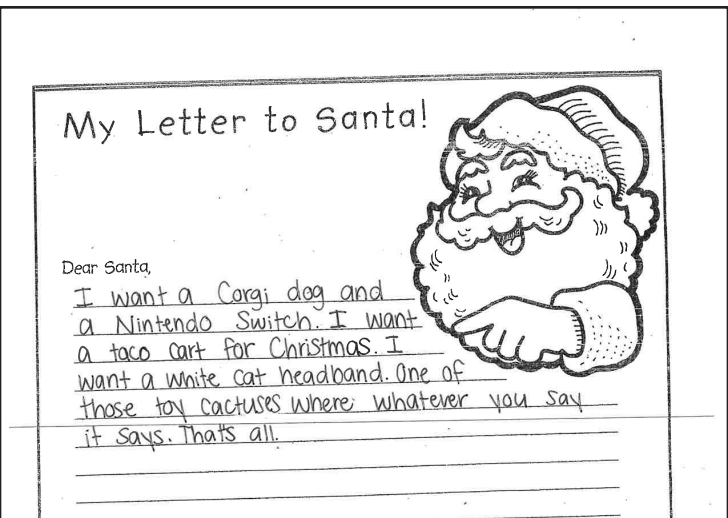 My Letter to Santa!
Dear Santa,
I want a Corgi dog and
a Nintendo Switch. I want
a taco cart for Christmas. I
want a white cat headband. One of
those toy cactuses where whatever you say
it says. Thats all.